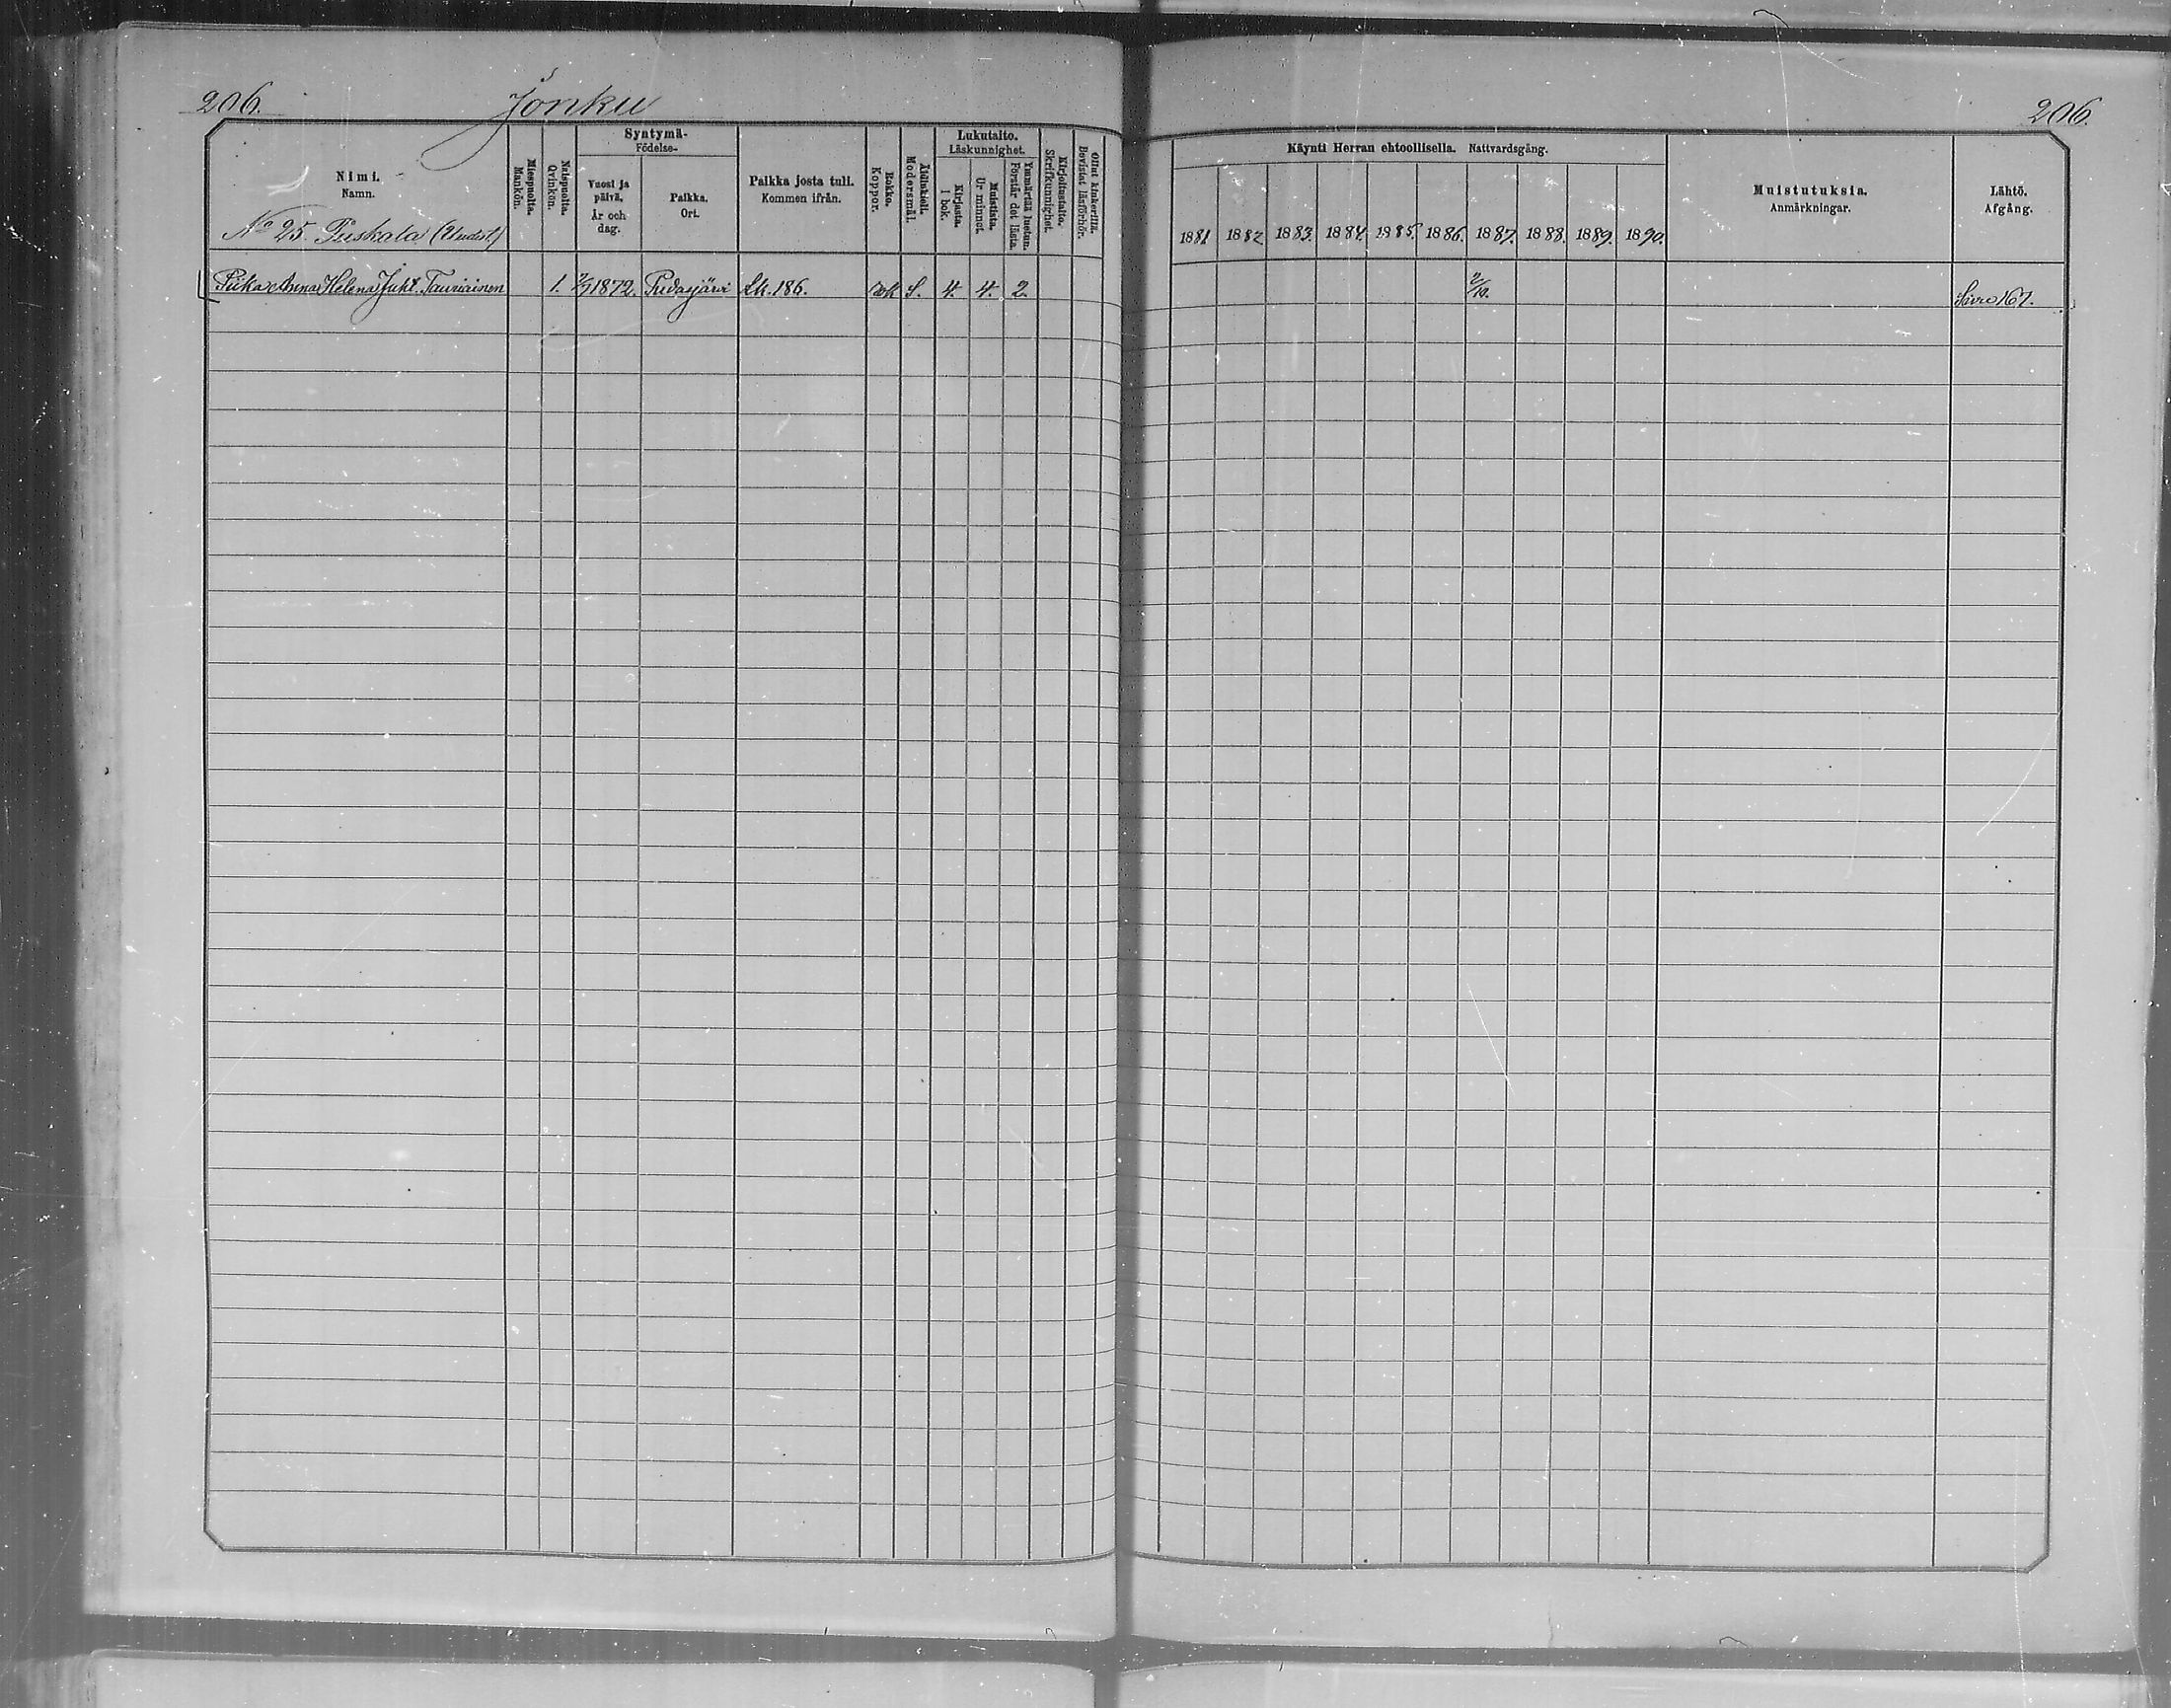 206.
Jonku
206.
Nimi.
Namn.
No 25. Puskala (Uudist.)
Miespuolta.
Mankön.
Naispuolta.
Qvinkön.
Syntymä-
Födelse-
Vuosi ja
päivä.
År och
dag.
Paikka.
Ort.
Paikka josta tuli.
Kommen ifrån.
Rokko.
Koppor.
Äidinkieli.
Modersmål.
Lukutaito.
Läskunnighet.
Kirjasta.
I bok.
Muistista.
Ur minnet.
Ymmärtää luetun.
Förstår det lästa.
Kirjoitustaito.
Skrifkunnighet.
Ollut kinkerillä.
Bevistat läsförhör.
Käynti Herran ehtoollisella. Nattvardsgång.
1881 1882 1883. 1884. 1885. 1886. 1887. 1888. 1889. 1890.
Muistutuksia.
Anmärkningar.
Lähtö.
Afgång.
Piika Anna Helena Juht. Tauriainen 1. 1872. Pudasjärvi Lk. 186. rok S. 4. 4. 2. 2/10. Sivu 167.